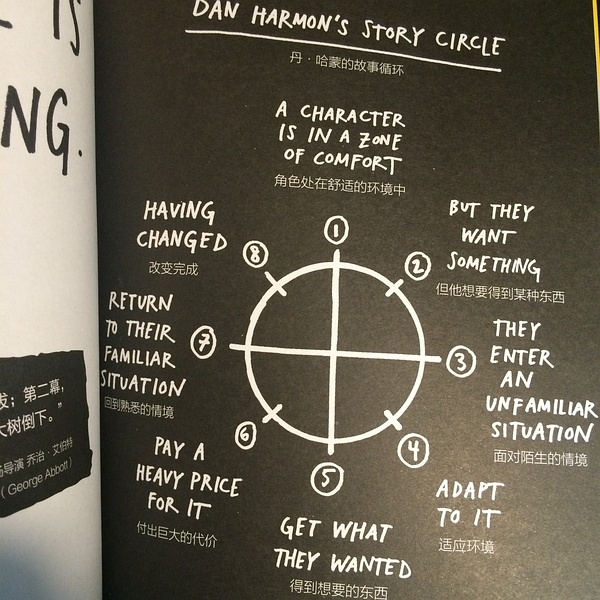 IS
NG.
发；第二幕，
大树倒下。”
导演 乔治·艾伯特
(George Abbott)
DAN HARMON'S STORY CIRCLE
丹·哈蒙的故事循环
A CHARACTER
IS IN A ZONE
OF COMFORT
角色处在舒适的环境中
1
BUT THEY
WANT
SOMETHING
但他想要得到某种东西
2
THEY
ENTER
AN
UNFAMILIAR
SITUATION
面对陌生的情境
3
ADAPT
TO IT
适应环境
4
GET WHAT
THEY WANTED
得到想要的东西
5
PAY A
HEAVY PRICE
FOR IT
付出巨大的代价
6
RETURN
TO THEIR
FAMILIAR
SITUATION
回到熟悉的情境
7
HAVING
CHANGED
改变完成
8